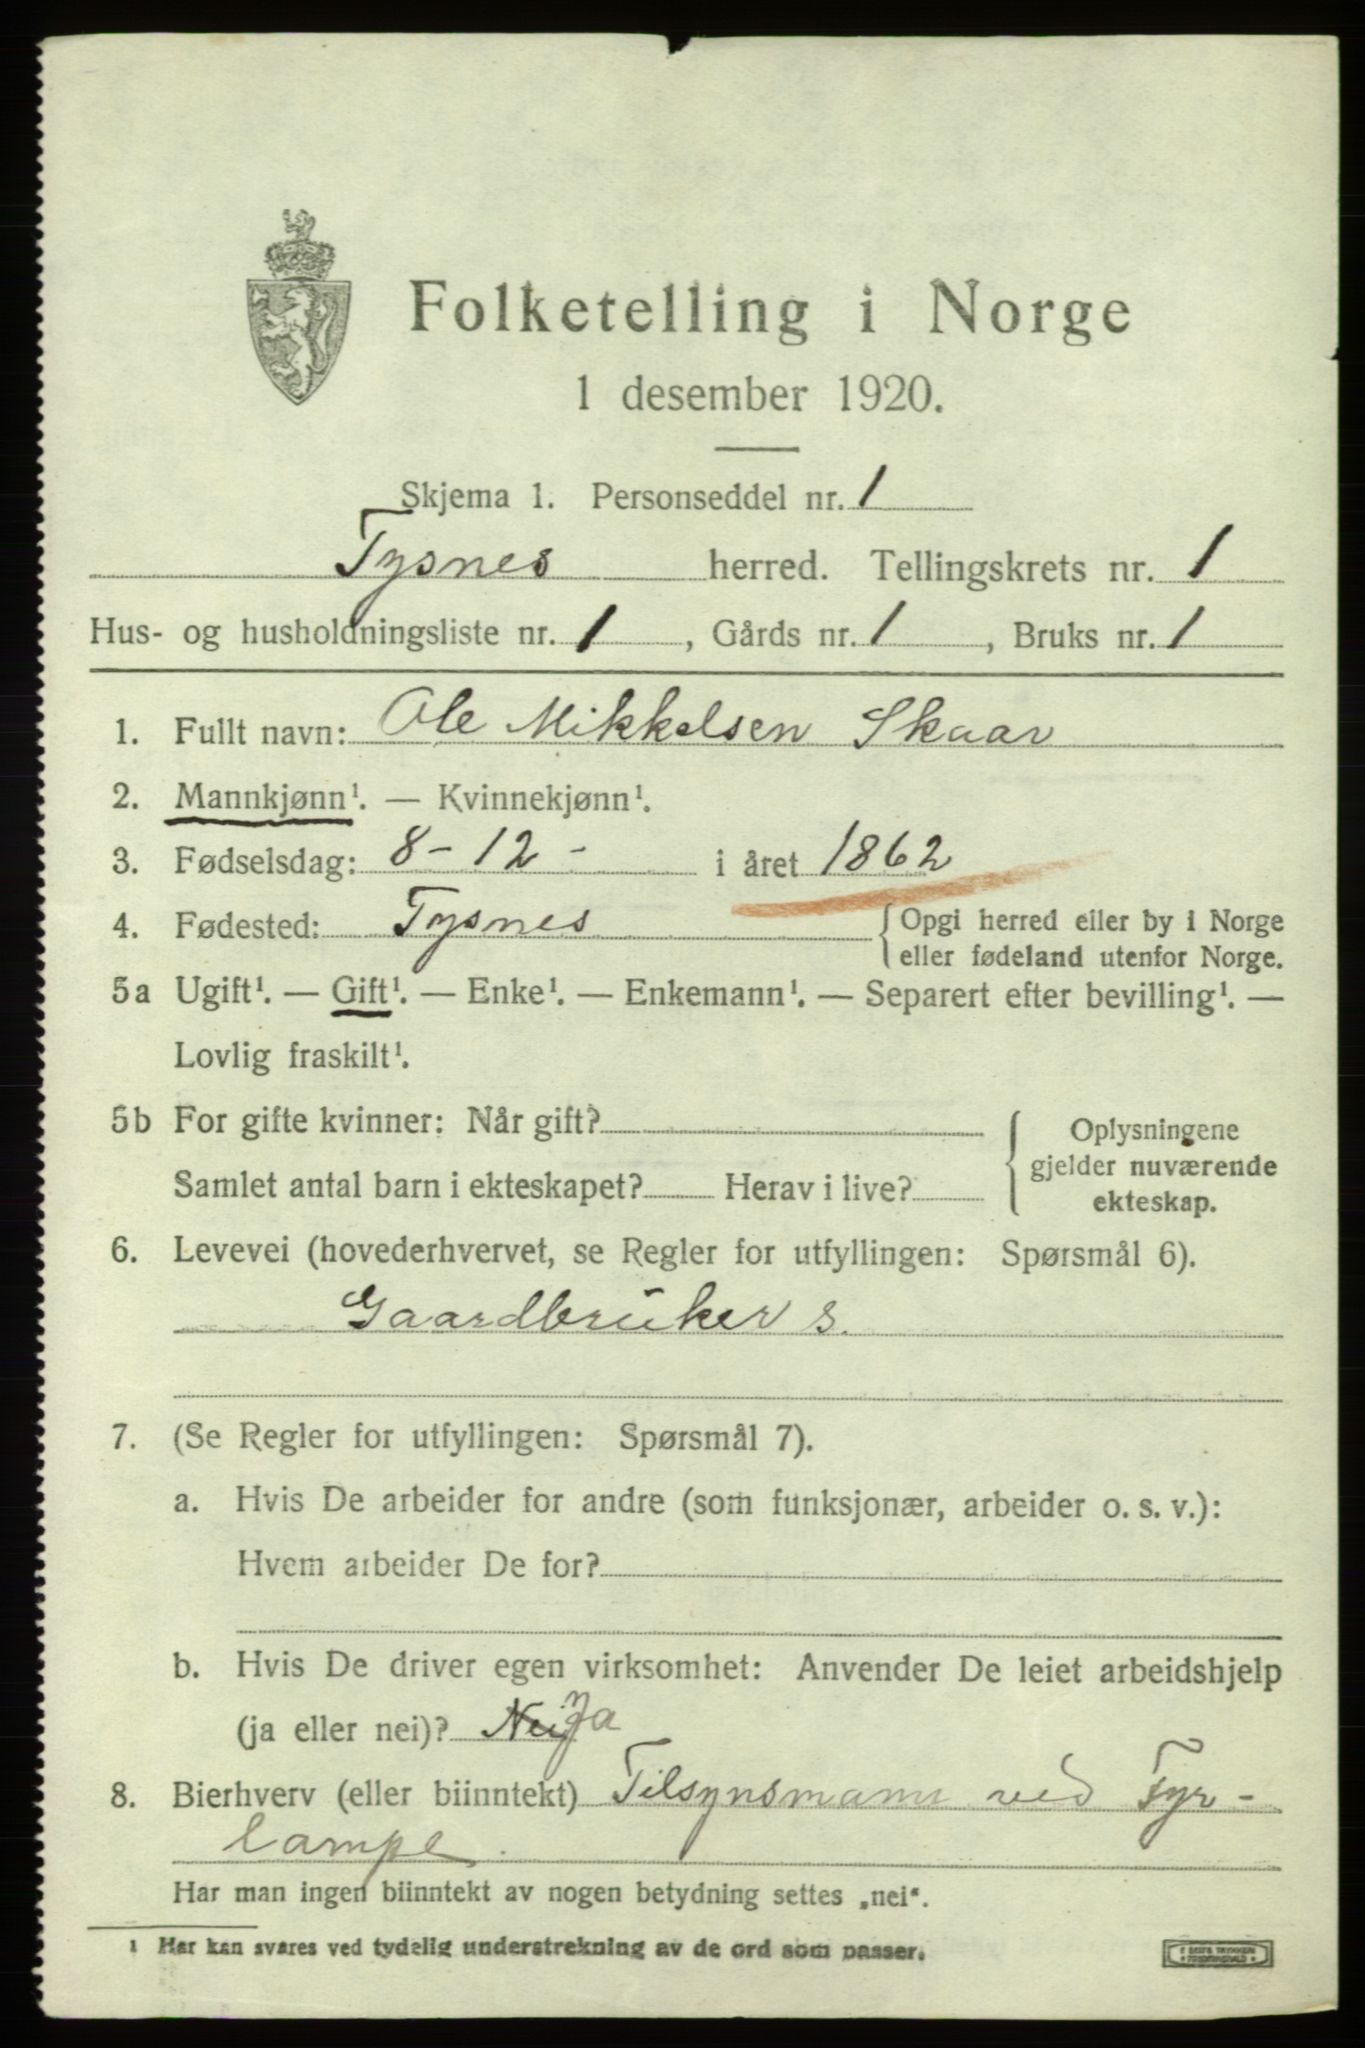 Folketelling i Norge
1 desember 1920.
Skjema 1. Personseddel nr. 1
Tysnes herred. Tellingskrets nr. 1
Hus- og husholdningsliste nr. 1, Gårds nr. 1, Bruks nr. 1
1. Fullt navn: Ole Mikkelsen Skaar
2. Mannkjønn¹. — Kvinnekjønn¹.
3. Fødselsdag: 8 - 12 - i året 1862
4. Fødested: Tysnes { Opgi herred eller by i Norge
eller fødeland utenfor Norge.
5a Ugift¹. — Gift¹. — Enke¹. — Enkemann¹. — Separert efter bevilling¹. —
Lovlig fraskilt¹.
5b For gifte kvinner: Når gift? { Oplysningene
gjelder nuværende
Samlet antal barn i ekteskapet? Herav i live?
ekteskap.
6. Levevei (hovederhvervet, se Regler for utfyllingen: Spørsmål 6).
Gaardbruker s.
7. (Se Regler for utfyllingen: Spørsmål 7).
a. Hvis De arbeider for andre (som funksjonær, arbeider o. s. v.):
Hvem arbeider De for?
b. Hvis De driver egen virksomhet: Anvender De leiet arbeidshjelp
(ja eller nei)? Nei Ja
8. Bierhverv (eller biinntekt) Tilsynsmann ved Fyr-
lampe.
Har man ingen biinntekt av nogen betydning settes „nei“.
1 Her kan svares ved tydelig understrekning av de ord som passer.